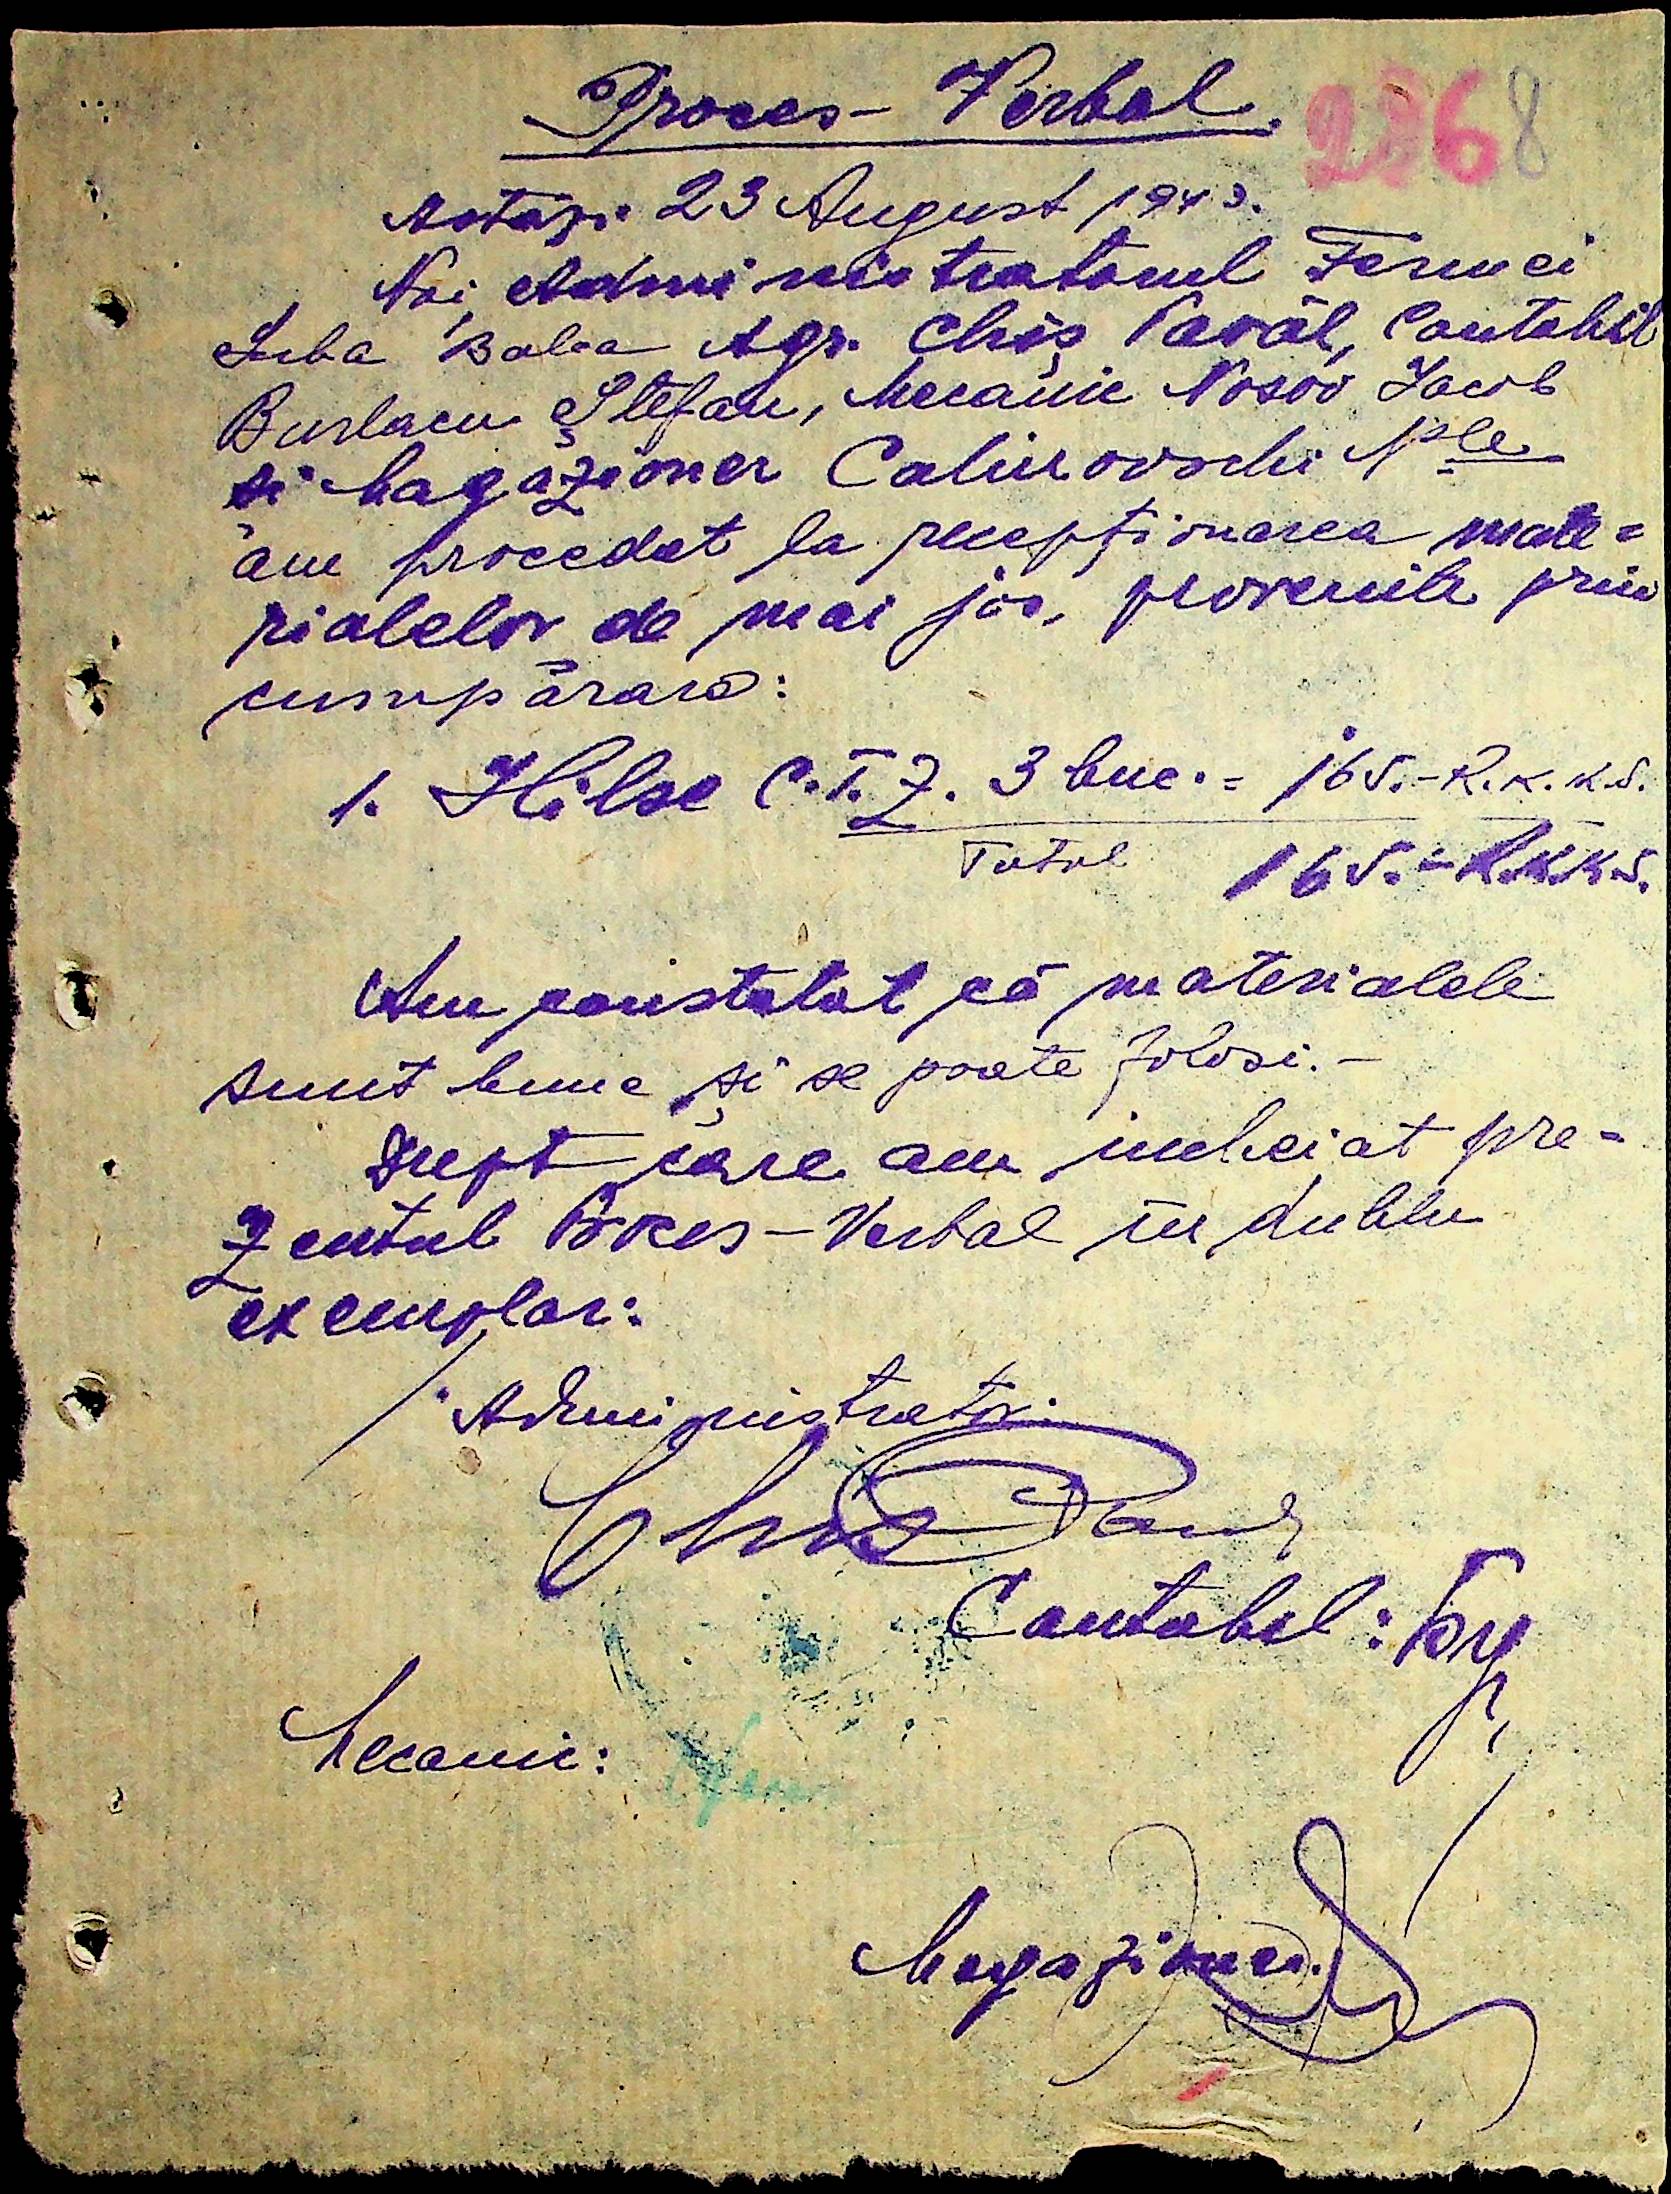 Proces-Verbal.
2368
Astăzi 23 August 1943.
Noi, Administratorul Fermei
Balca Agr. Chiș Pavăl, Contabil
Burlacu Ștefan, Mecanic Nosov Iacob
și Magazioner Calinovschi N-le
am procedat la recepționarea mate=
rialelor de mai jos, provenite prin
cumpărare:
1. Hilse C.T.Z. 3 buc. = 165.- R.K.K.S.
Total 165.- R.K.K.S.
Am constatat că materialele
sunt bune și se poate folosi.-
Drept care am incheiat pre=
zentul Proces-Verbal in dublu
exemplar:
Administrator:
Chiș Pavăl
Contabil:
Mecanic:
Magazioner.